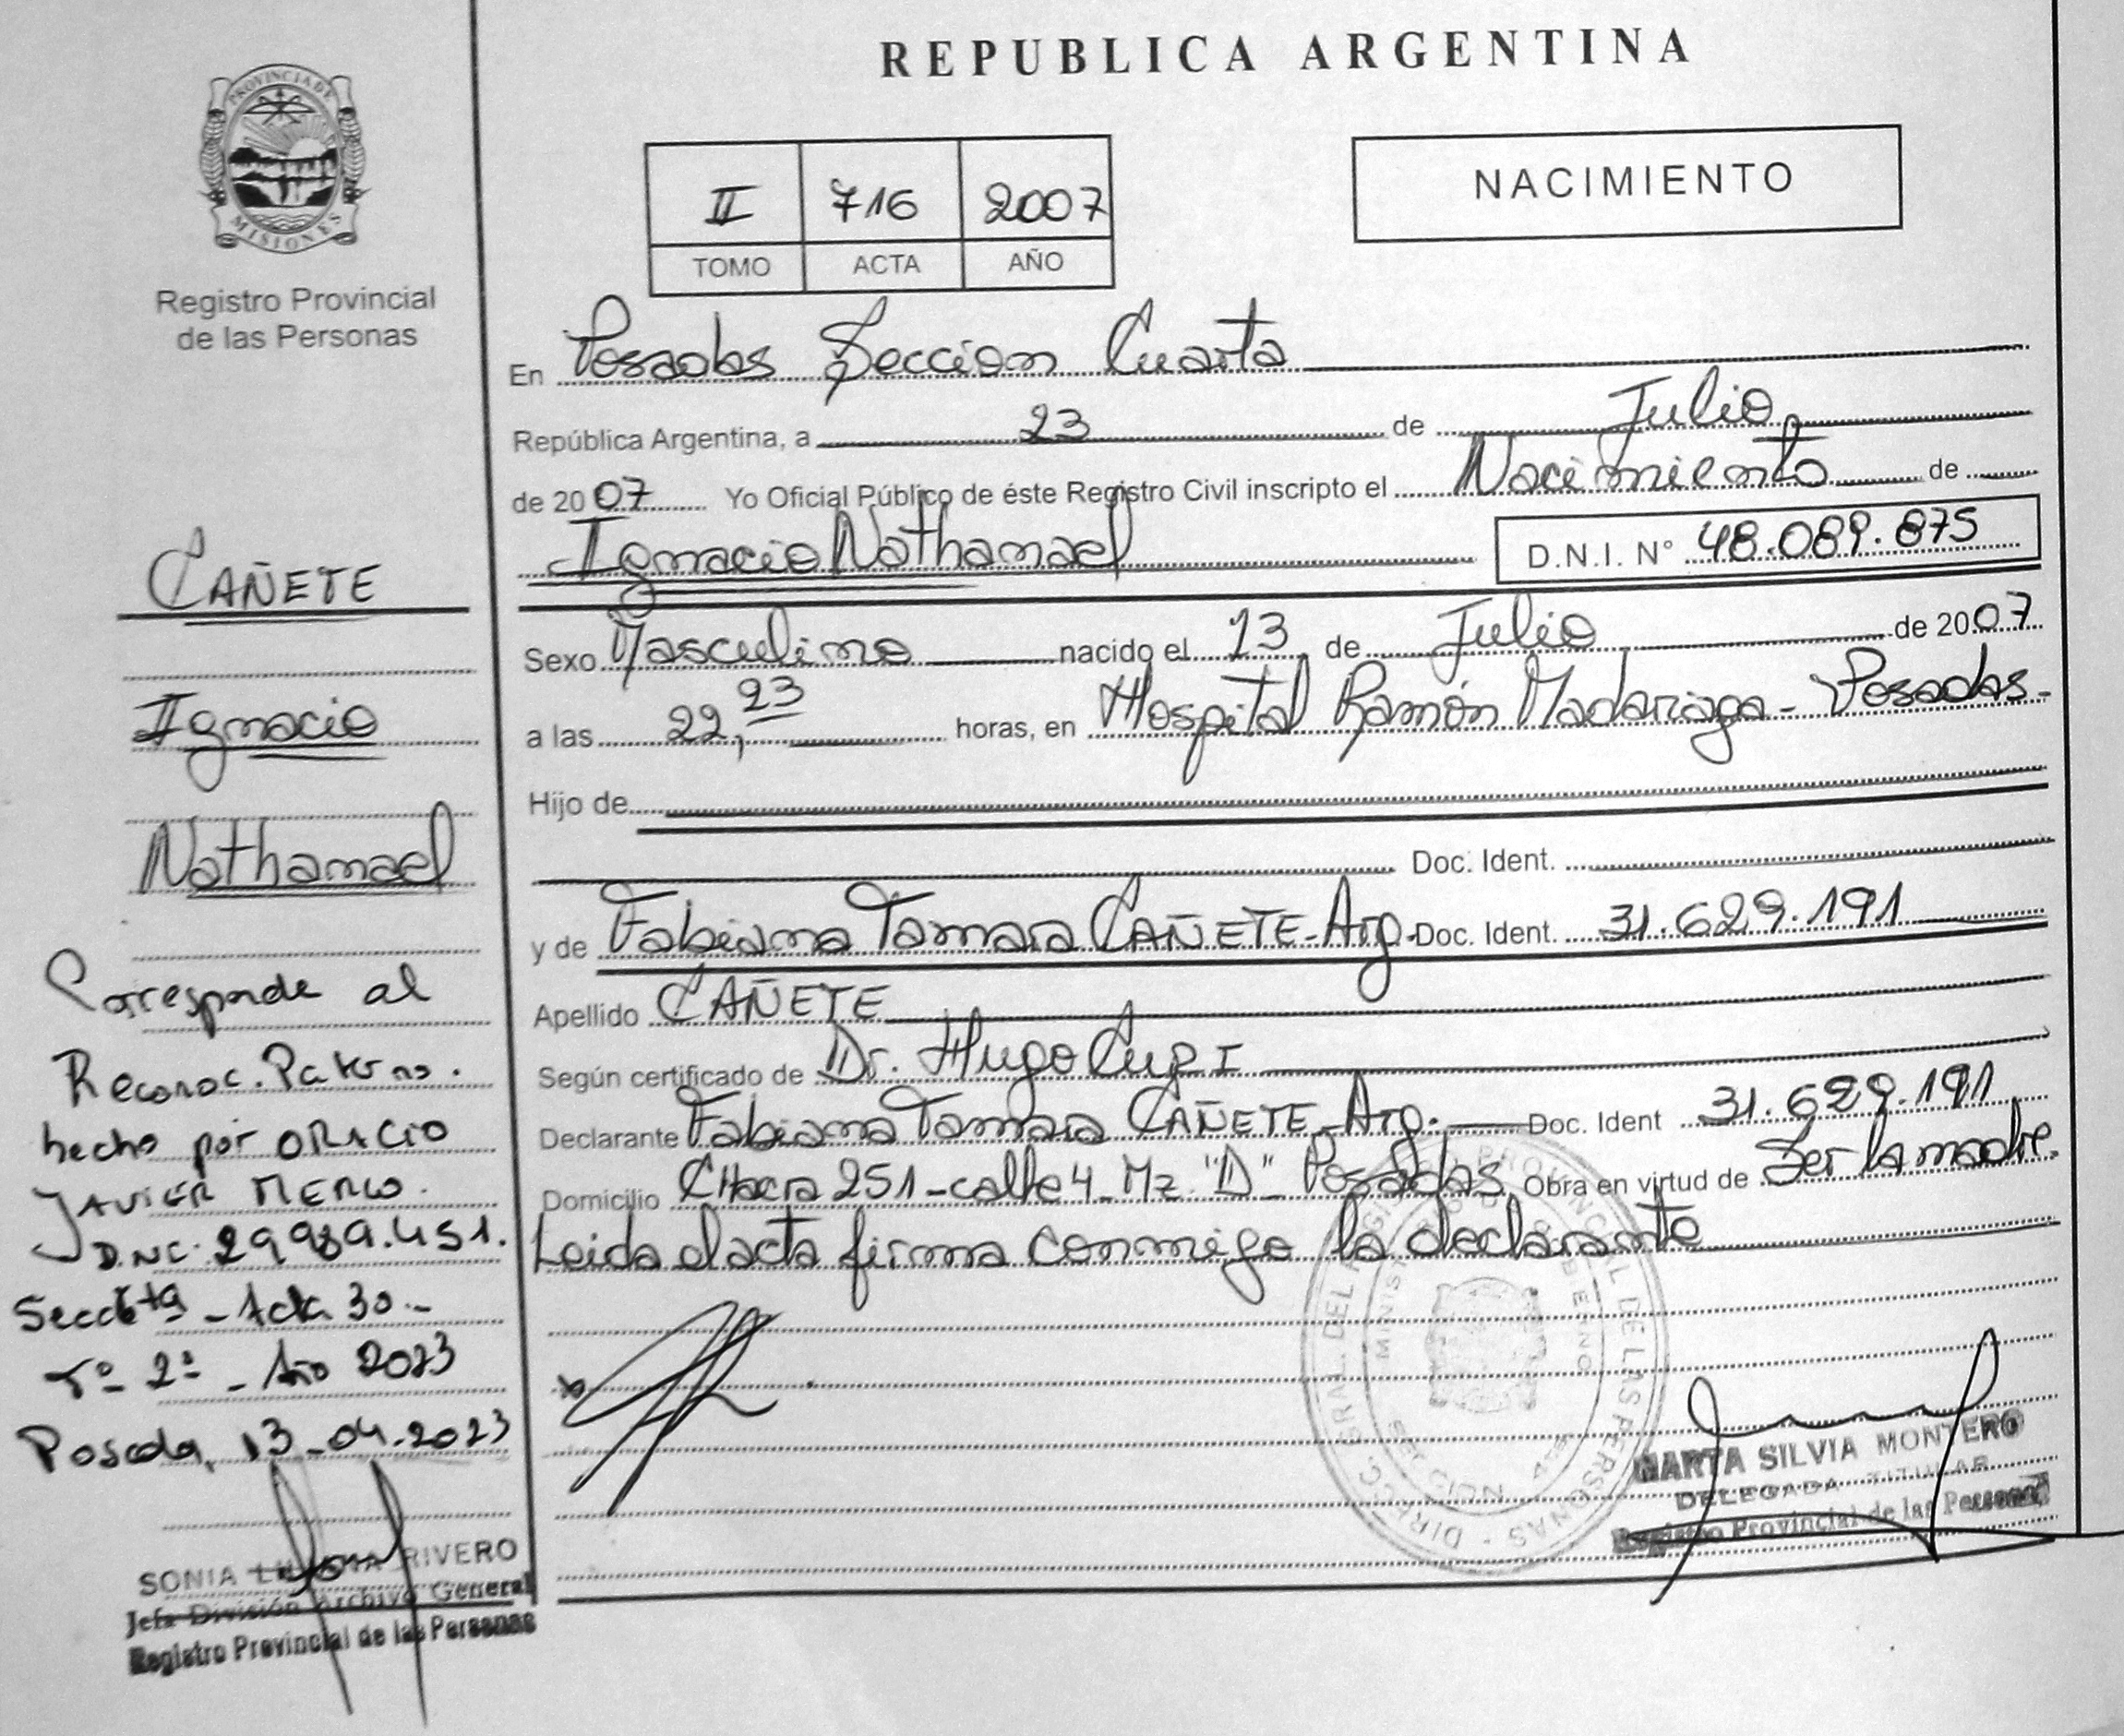 REPUBLICA ARGENTINA
PROVINCIA DE
MISIONES
Registro Provincial
de las Personas
II 716 2007
TOMO ACTA AÑO
NACIMIENTO
En Posadas Seccion Cuarta
República Argentina, a 23 de Julio
de 2007 Yo Oficial Público de éste Registro Civil inscripto el Nacimiento de
Ignacio Nathanael D.N.I. N° 48.089.875
Sexo Masculino nacido el 13 de Julio de 2007
a las 22,23 horas, en Hospital Ramón Madariaga - Posadas-
Hijo de
Doc. Ident.
y de Fabiana Tamara CAÑETE-Arg. Doc. Ident. 31.629.191
Apellido CAÑETE
Según certificado de Dr. Hugo
Declarante Fabiana Tamara CAÑETE-Arg. Doc. Ident 31.629.191
Domicilio Chacra 251-calle 4-Mz."D" Posadas Obra en virtud de Ser la madre.
Leida el acta firma conmigo la declarante
MARTA SILVIA MONTERO
DELEGADA TITULAR
Registro Provincial de las Personas
CAÑETE
Ignacio
Nathanael
Corresponde al
Reconoc. Paterno.
hecho por ORACIO
JAVIER MERLO.
29989.451.
Acta 30.-
Tº- 2º - Año 2023
Posadas, 13-04-2023
SONIA RIVERO
Jefa División Archivo General
Registro Provincial de las Personas